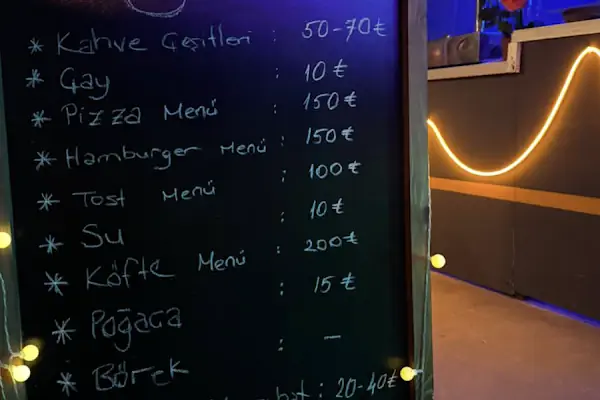 * Kahve Çeşitleri : 50-70₺
* Çay : 10₺
* Pizza Menü : 150₺
* Hamburger Menü : 150₺
* Tost Menü : 100₺
* Su : 10₺
* Köfte Menü : 200₺
* Poğaca : 15₺
* Börek : —
: 20-40₺